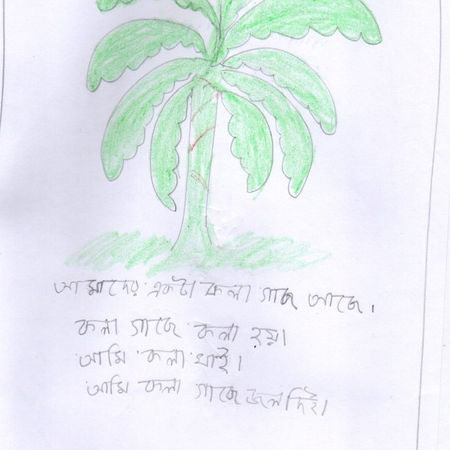 আমাদের একটা কলা গাজে আজে।
কলা গাজে কলা হয়।
আমি কলা খাই।
আমি কলা গাজে জল দিই।